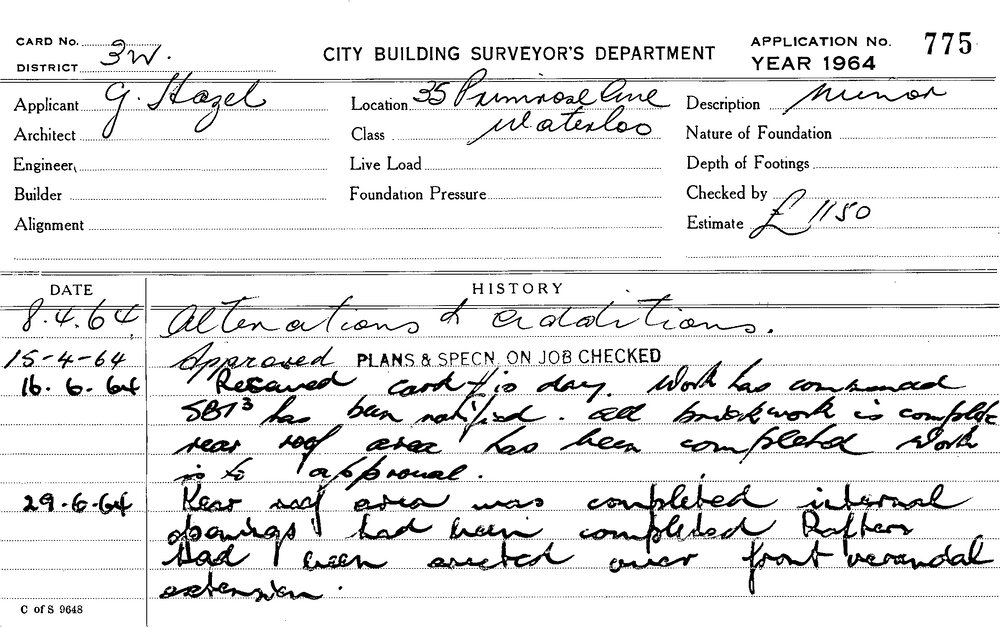 CARD No.
DISTRICT 3W.
CITY BUILDING SURVEYOR'S DEPARTMENT
APPLICATION No. 775
YEAR 1964
Applicant G. Hazel
Location 35 Primrose Ave
Description Minor
Architect
Class Waterloo
Nature of Foundation
Engineer
Live Load
Depth of Footings
Builder
Foundation Pressure
Checked by
Alignment
Estimate £1150
DATE
HISTORY
8.4.64 Alterations & additions.
15-4-64 Approved PLANS & SPECN. ON JOB CHECKED
16.6.64 Received card this day. Work has commenced
has been notified. all brickwork is complete
rear roof area has been completed Work
is to approval.
29.6.64 Rear roof area was completed internal
openings had been completed Rafters
Had been erected over front verandal
extension.
C of S 9648